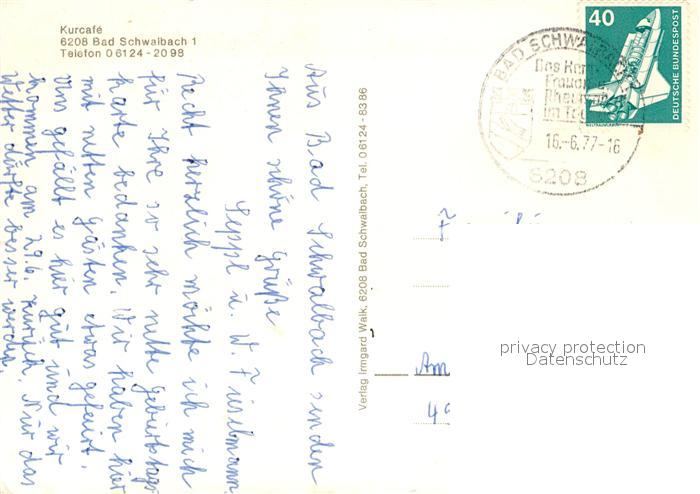 Kurcafé
6208 Bad Schwalbach 1
Telefon 0 6124 - 20 98
Aus Bad Schwalbach senden
Ihnen schöne Grüße
Seppl u. W. Füselmann.
Recht herzlich möchte ich mich
für Ihre so sehr nette Geburtstags
karte bedanken. Wir haben hier
mit netten Gästen etwas gefeiert.
Uns gefällt es hier gut und wir
kommen am 29.6. zurück. Nur das
Wetter dürfte besser werden.
Verlag Irmgard Walk, 6208 Bad Schwalbach, Tel. 0 6124 - 83 86
40
DEUTSCHE BUNDESPOST
BAD SCHWALBACH
Das
im
16.-6.77-16
6208
F
Am
privacy protection
Datenschutz